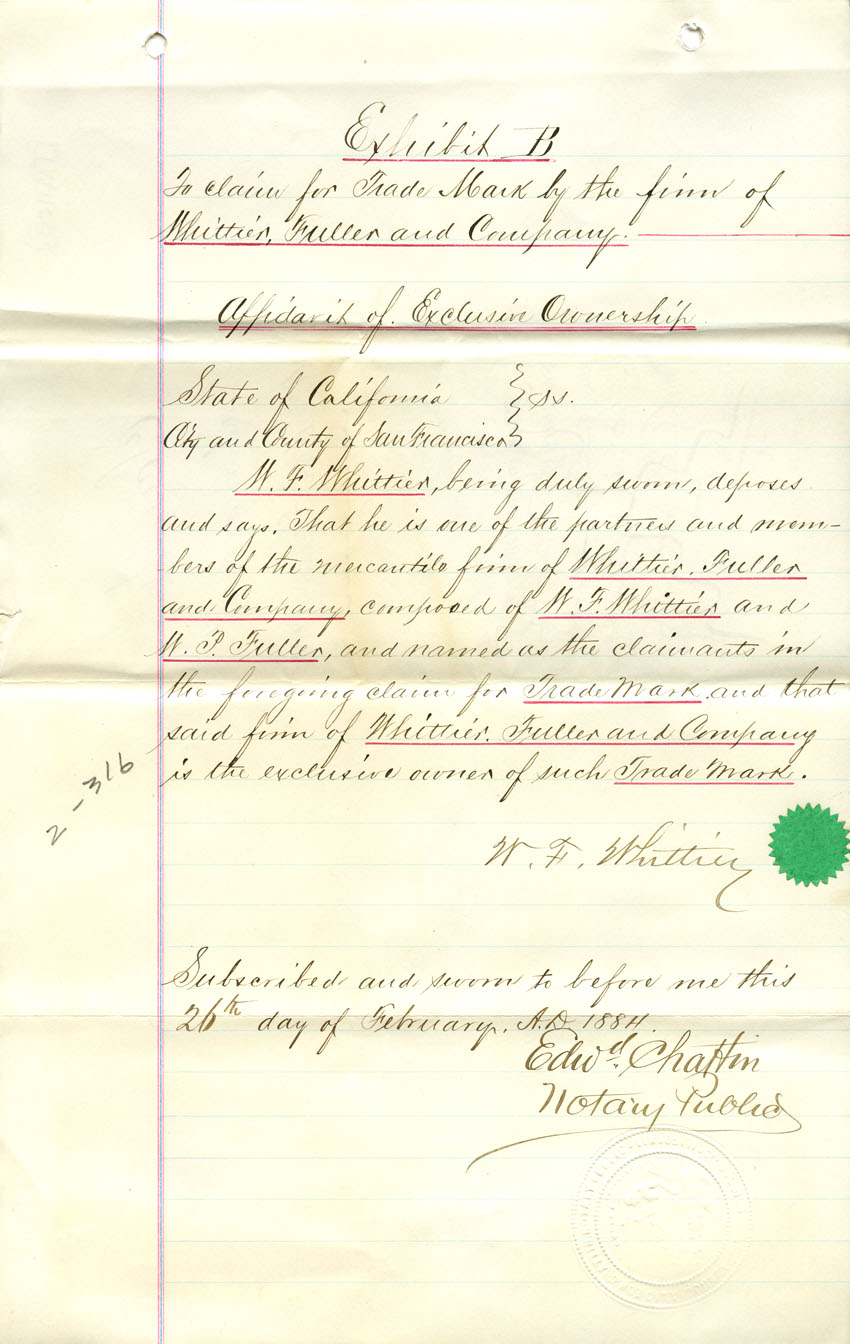 Exhibit B
To claim for Trade Mark by the firm of
Whittier, Fuller and Company.
Affidavit of Exclusive Ownership
State of California } ss.
City and County of San Francisco }
W. F. Whittier, being duly sworn, deposes
and says, That he is one of the partners and mem-
-bers of the mercantile firm of Whittier, Fuller
and Company, composed of W. F. Whittier and
W. P. Fuller, and named as the claimants in
the foregoing claim for Trade Mark, and that
said firm of Whittier, Fuller and Company
is the exclusive owner of such Trade Mark.
2-316
W. F. Whittier
Subscribed and sworn to before me this
26th day of February, A.D. 1884.
Edwd. Chattin
Notary Public